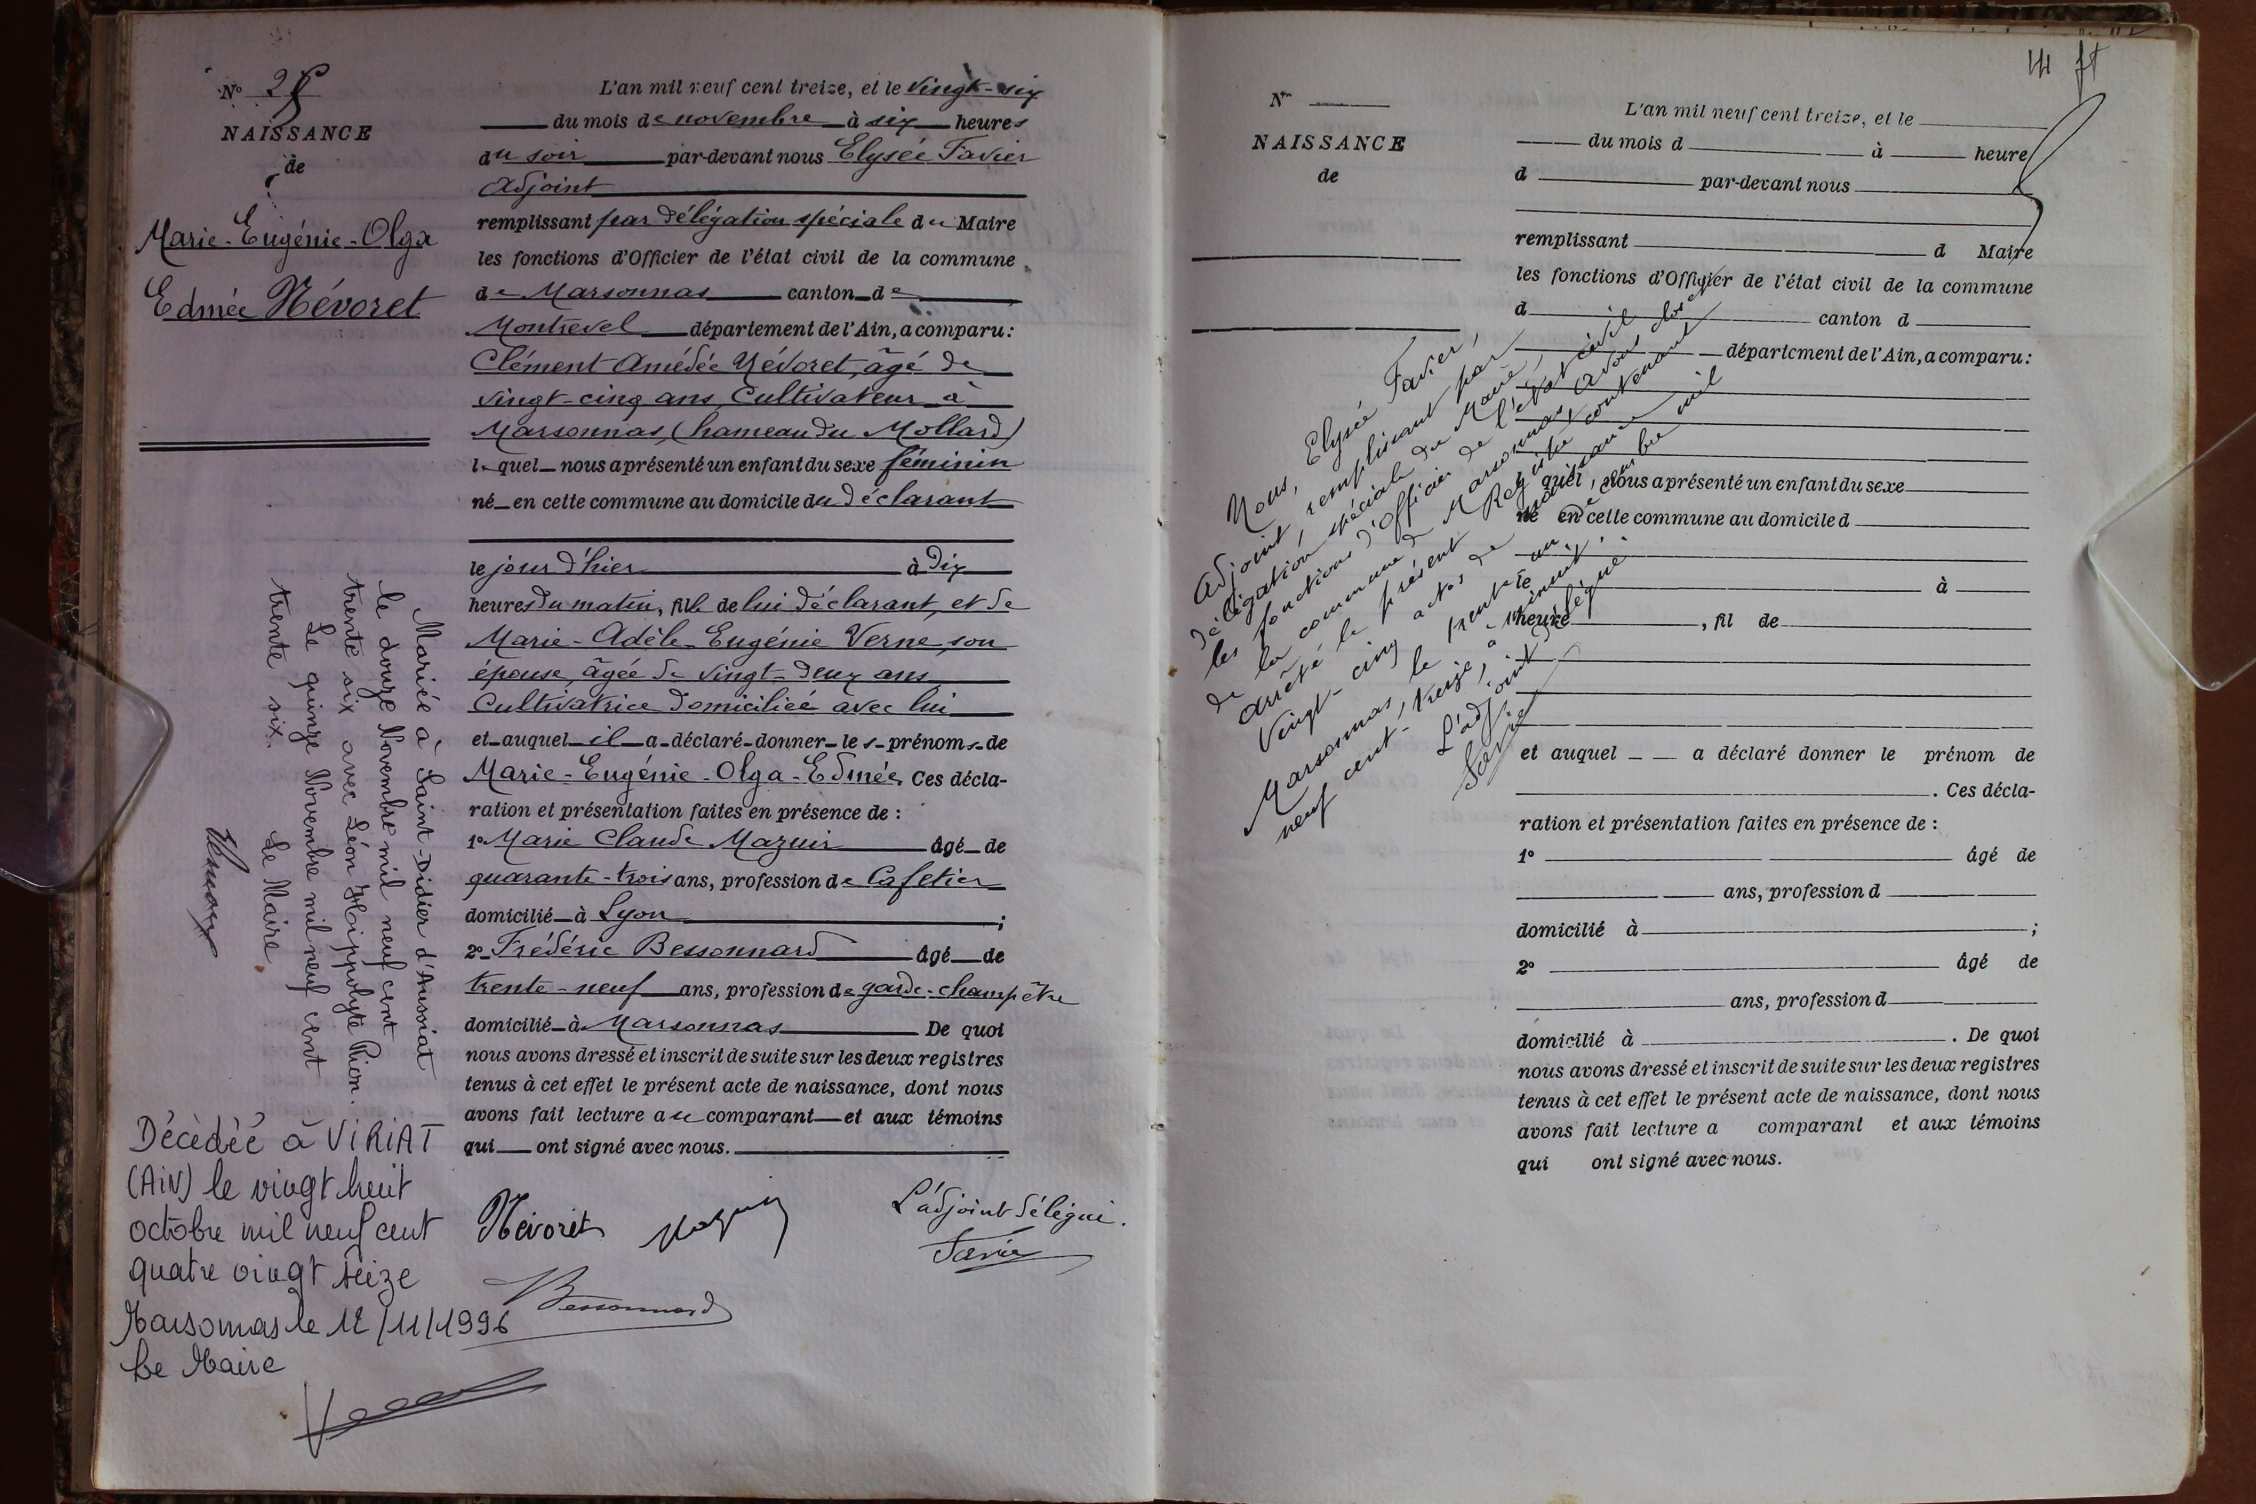 N° 25
NAISSANCE
de
Marie-Eugénie-Olga
Edmée Névoret
L'an mil neuf cent treize, et le vingt-six
du mois de novembre à six heures
du soir par-devant nous Elysée Favier
Adjoint
remplissant par délégation spéciale du Maire
les fonctions d'Officier de l'état civil de la commune
de Marsonnas canton de
Montrevel département de l'Ain, a comparu :
Clément Amédée Névoret, âgé de
vingt-cinq ans, Cultivateur à
Marsonnas, (hameau du Mollard)
lequel nous a présenté un enfant du sexe féminin
né en cette commune au domicile du déclarant
le jour d'hier à dix
heures du matin, fille de lui déclarant, et de
Marie-Adèle-Eugénie Verne, son
épouse, âgée de vingt-deux ans,
Cultivatrice domiciliée avec lui
et auquel il a déclaré donner les prénoms de
Marie-Eugénie-Olga-Edmée. Ces décla-
ration et présentation faites en présence de :
1° Marie Claude Mazuir âgé de
quarante-trois ans, profession de Cafetier
domicilié à Lyon ;
2° Frédéric Bessonnard âgé de
trente-neuf ans, profession de garde-champêtre
domicilié à Marsonnas De quoi
nous avons dressé et inscrit de suite sur les deux registres
tenus à cet effet le présent acte de naissance, dont nous
avons fait lecture au comparant et aux témoins
qui ont signé avec nous.
Névoret Mazuir L'adjoint délégué.
Favier
Bessonnard
Mariée à Saint-Didier d'Aussiat
le douze Novembre mil neuf cent
trente six avec Léon Hippolyte Pion.
Le quinze Novembre mil neuf cent
trente six. Le Maire,
Décèdèé à VIRIAT
(AiN) le vingt huit
octobre mil neuf cent
quatre vingt seize
Marsonnas le 12/11/1996
Le Maire
14
N°
NAISSANCE
de
L'an mil neuf cent treize, et le
du mois d à heure
d par-devant nous
remplissant d Maire
les fonctions d'Officier de l'état civil de la commune
d canton d
département de l'Ain, a comparu :
quel nous a présenté un enfant du sexe
né en cette commune au domicile d
le à
heure , fil de
et auquel a déclaré donner le prénom de
. Ces décla-
ration et présentation faites en présence de :
1° âgé de
ans, profession d
domicilié à ;
2° âgé de
ans, profession d
domicilié à . De quoi
nous avons dressé et inscrit de suite sur les deux registres
tenus à cet effet le présent acte de naissance, dont nous
avons fait lecture a comparant et aux témoins
qui ont signé avec nous.
Nous, Elysée Favier,
Adjoint, remplissant par
délégation spéciale du Maire,
les fonctions d'Officier de l'état civil
de la commune de Marsonnas avons clos et
arrêté le présent Registre contenant
vingt-cinq actes de naissance
Marsonnas, le trente un décembre mil
neuf cent-treize, à minuit.
L'adjoint délégué
Favier